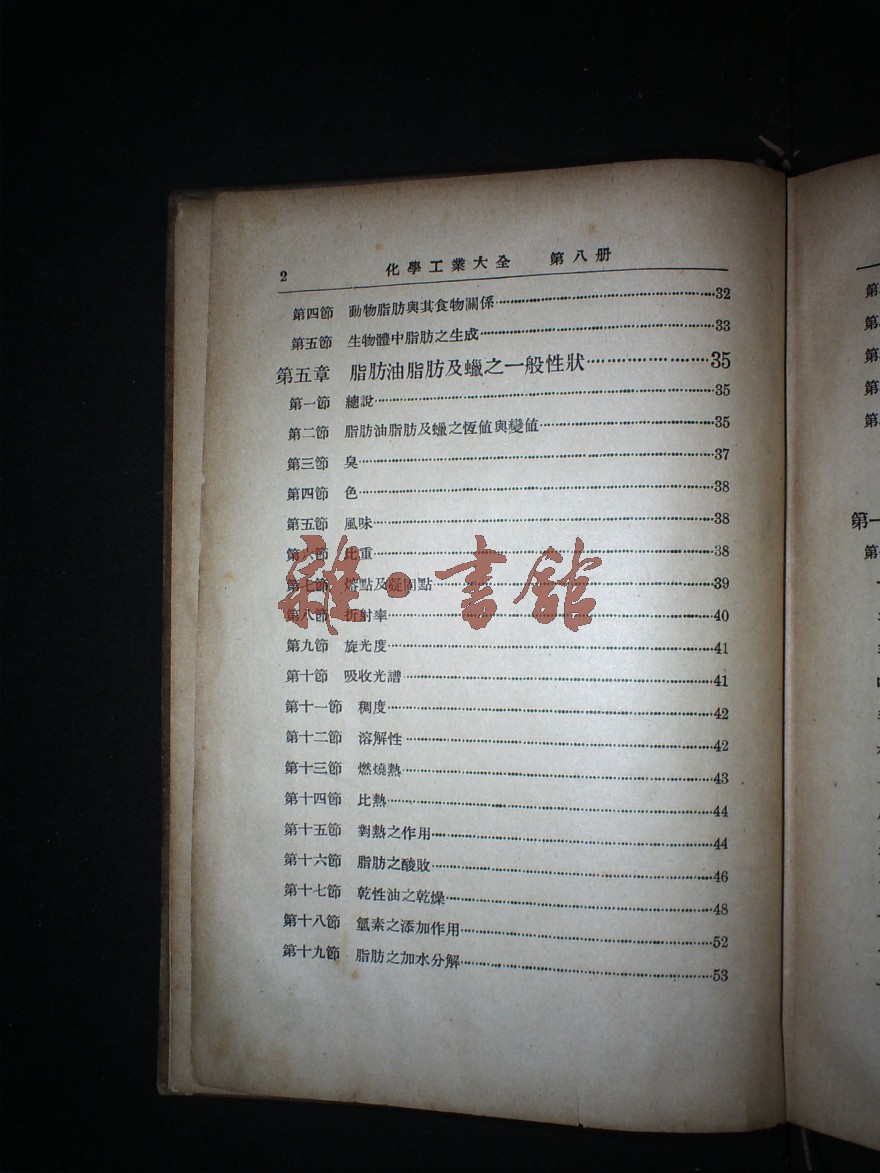 2 化學工業大全 第八册
第四節 動物脂肪與其食物關係……32
第五節 生物體中脂肪之生成……33
第五章 脂肪油脂肪及蠟之一般性狀……35
第一節 總說……35
第二節 脂肪油脂肪及蠟之恆値與變値……35
第三節 臭……37
第四節 色……38
第五節 風味……38
第六節 比重……38
第七節 熔點及凝固點……39
第八節 折射率……40
第九節 旋光度……41
第十節 吸收光譜……41
第十一節 稠度……42
第十二節 溶解性……42
第十三節 燃燒熱……43
第十四節 比熱……44
第十五節 對熱之作用……44
第十六節 脂肪之酸敗……46
第十七節 乾性油之乾燥……48
第十八節 氫素之添加作用……52
第十九節 脂肪之加水分解……53
雜·書館